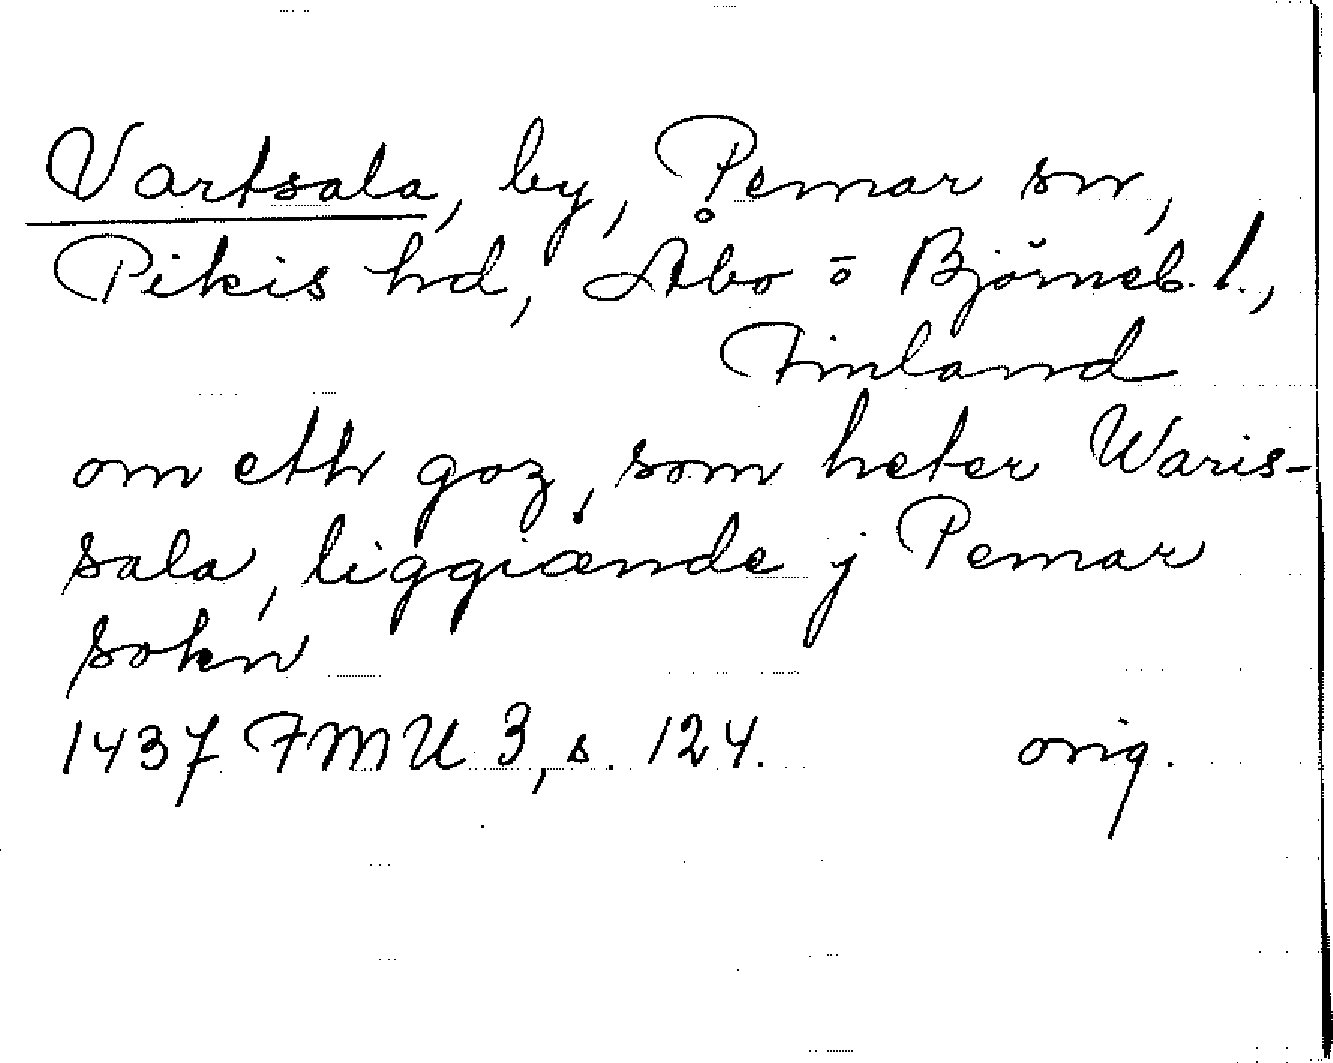 Vartsala, by, Pemar sn,
Pikis hd, Åbo o Björneb. l.,
Finland
om eth goz, som heter Waris-
sala, liggiænde j Pemar
sokn
1437 FMU 3, s. 124. orig.